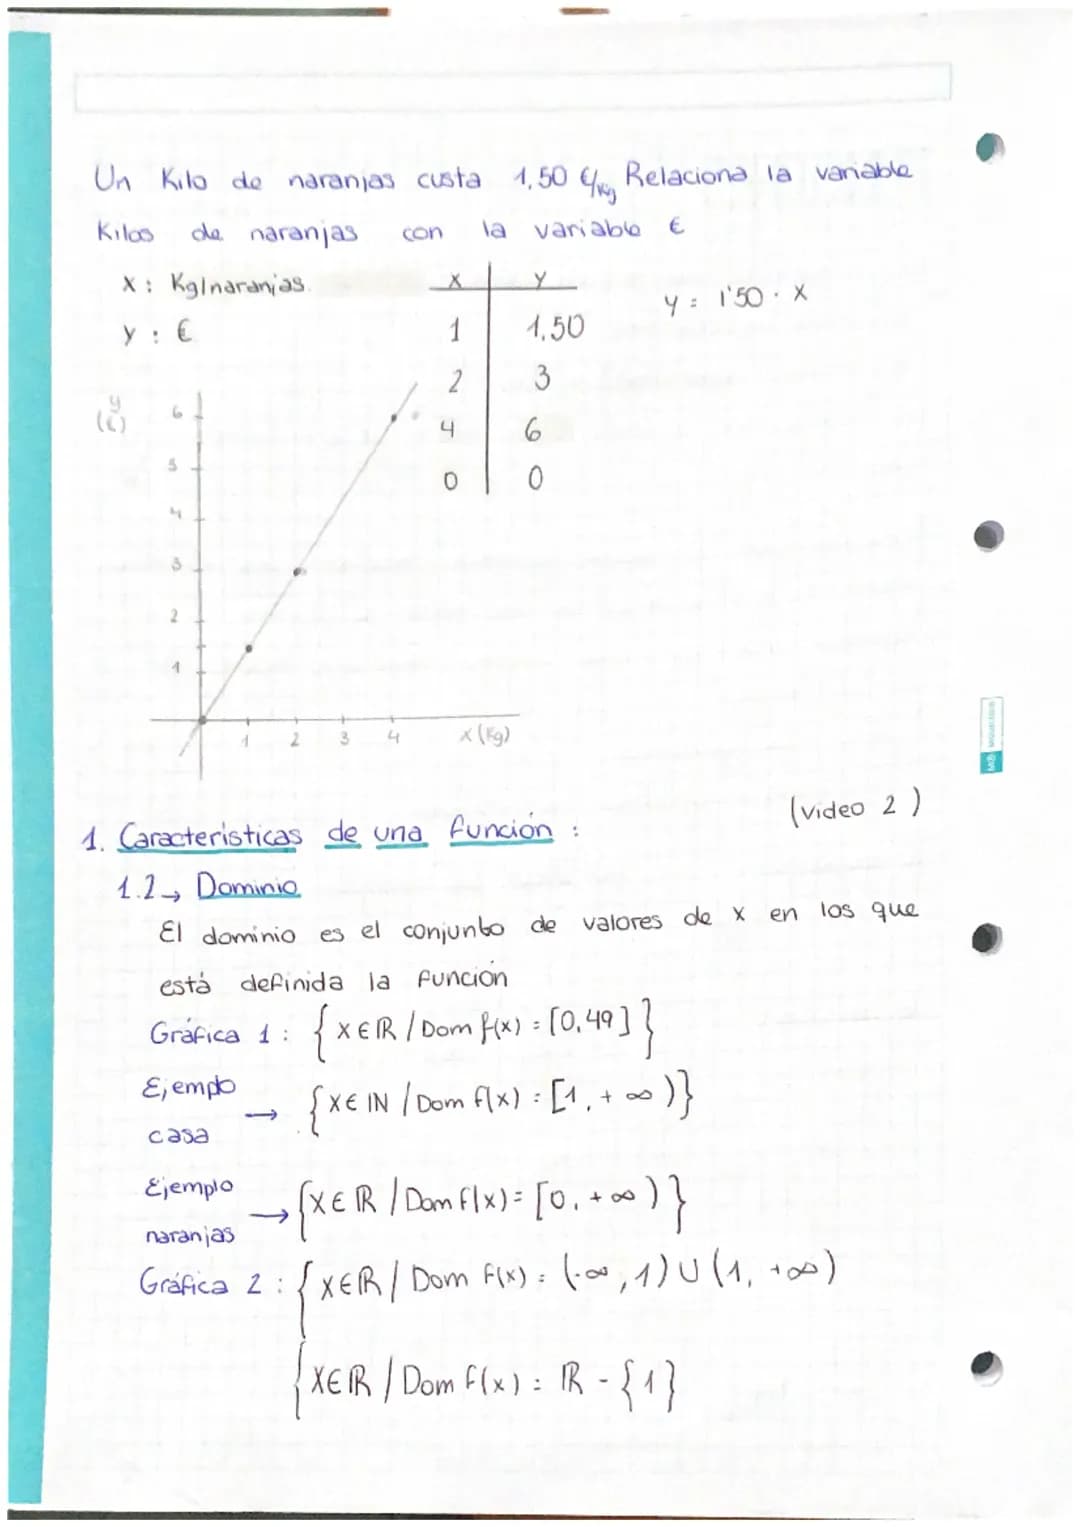 Un Kilo de naranjas custa 1,50 €/Kg Relaciona la variable
Kilos de naranjas con la variable €
X: Kg/naranjas.
y: €
X Y
1 1,50
2 3
4 6
0 0
y = 1'50 · X
y
(€)
6
5
4
3
2
1
1 2 3 4 x (Kg)
(video 2)
1. Características de una función:
1.2→ Dominio
El dominio es el conjunto de valores de x en los que
está definida la función
Gráfica 1: {X∈ℝ / Dom f(x) = [0,49]}
Ejemplo casa → {X∈ℕ / Dom f(x) = [1, +∞)}
Ejemplo naranjas → {X∈ℝ / Dom f(x) = [0, +∞)}
Gráfica 2: {X∈ℝ / Dom f(x) = (-∞, 1) ∪ (1, +∞)
{X∈ℝ / Dom f(x) = ℝ - {1}